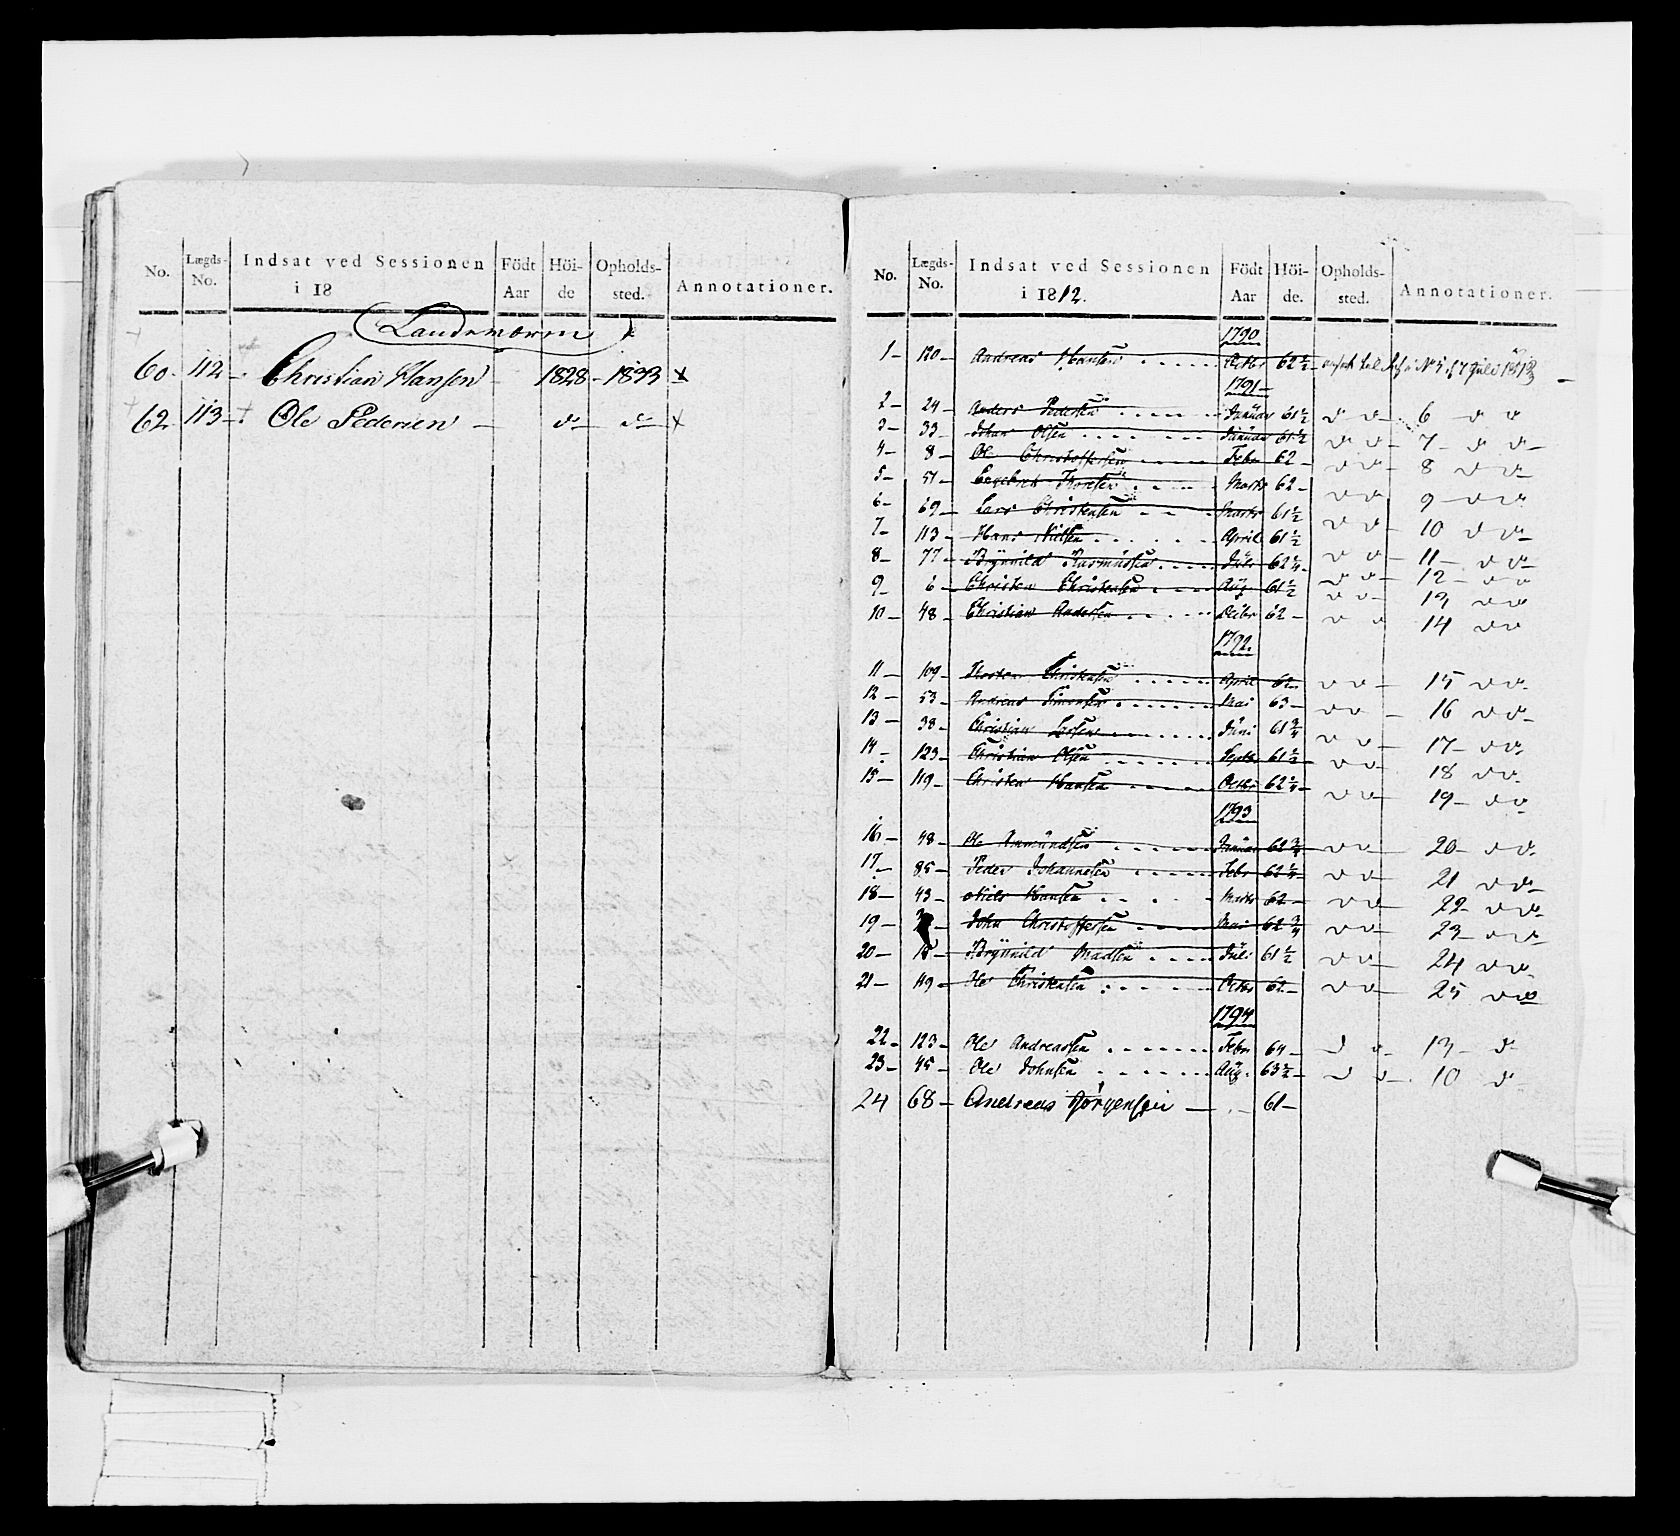 No. Lægds-No. Indsat ved Sessionen i 18 Födt Aar Höide Opholdssted. Annotationer.
Landemærn
60. 112 -. Christian Hansen - 1828 - 1833 x
62 113 -. Ole Pedersen - do do x
No. Lægds-No. Indsat ved Sessionen i 1812. Födt Aar Höide. Opholdssted. Annotationer.
1790
1 - 120 - Andreas Hansen Octbr 62½ No 5 7 Juli
1791 -
2 - 24 - Anders Pedersen Januar 61½ do do 6 do do
3 - 33 - Johan Olsen Januar 61½ do do 7 - do do -
4 - 8 - Ole Christoffersen Febr 62 - do do 8 do do
5 - 51 - Engebret Thoresen Marts 62 - do do 9 - do do
6 - 69 - Lars Christensen Marts 61½ do do 10 do do
7 - 113 - Hans Nielsen April 61½ do do - 11 - do do
8 - 77 - Brynnild Rasmussen Juli 62¼ do do - 12 - do do
9 - 6 - Christen Christensen Aug. 61½ do do 13 do do
10 - 48 - Christian Andersen Debr 62 - do do 14 do do
1792.
11 - 109 - Thosten Christensen April 62 - do do - 15 do do
12 - 53 - Andreas Simonsen Mai 63 - do do - 16 do do
13 - 38 - Christian Larsen Juni 61¾ do do - 17 - do do
14 - 123 - Christian Olsen Septr 61½ do do 18 do do
15 - 119 - Christen Hansen Octbr 62¼ do do - 19 - do do
1793
16 - 48 - Ole Anmundsen Januar 62¾ do do - 20 - do do
17 - 85 - Peder Johannesen Febr 62¼ do do - 21 do do
18 - 43 - Niels Hansen Marts 62 - do do - 22 - do do
19 - John Christoffersen Mai 62¾ do do - 23 - do do
20 - 18 - Brynnild Madsen Juli 61½ do do - 24 do do
21 - 49 - Ole Christensen Octbr 62 - do do - 25 do do
1794
22 - 123 - Ole Andreassen Febr 64 - do do - 13 - do
23 - 45 - Ole Johnsen Aug. 63½ - do do - 10 do
24 68 - Andreas Jörgensen - 61 -